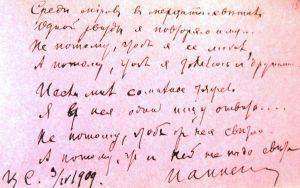 Среди мiров, в мерцании светил
Одной звезды я повторяю имя...
Не потому, чтоб я ее любил
А потому, что я томлюсь с другими
И если мне сомненье тяжело
Я у нея одной ищу ответа....
Не потому, чтоб от нея светло
А потому, что с ней не надо света
Ц С. 3/IV 1909.